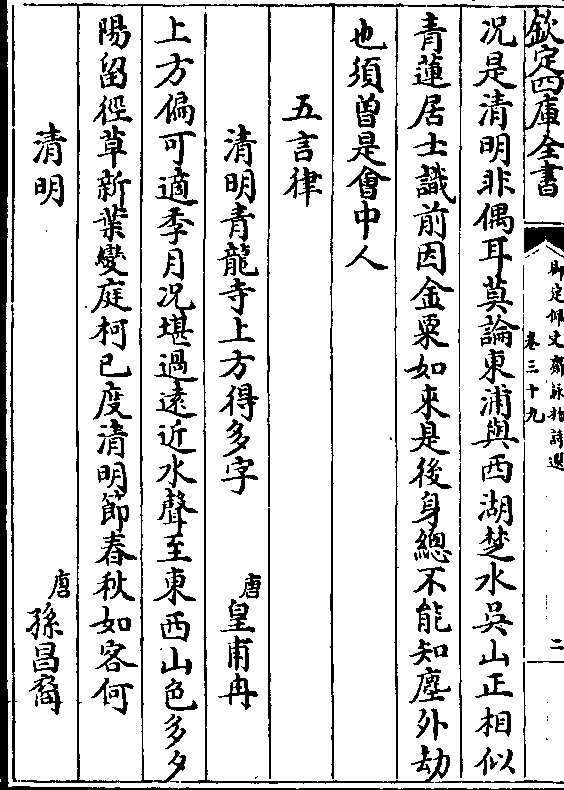 欽定四庫全書
御定佩文齋詠物詩選
卷三十九
二
况是清明非偶耳莫論東浦與西湖楚水吳山正相似
青蓮居士識前因金粟如來是後身總不能知塵外劫
也須曽是會中人
五言律
清明青龍寺上方得多字
唐皇甫冉
上方偏可適季月况堪過遠近水聲至東西山色多夕
陽留徑草新葉變庭柯已度清明節春秋如客何
清明
唐孫昌裔